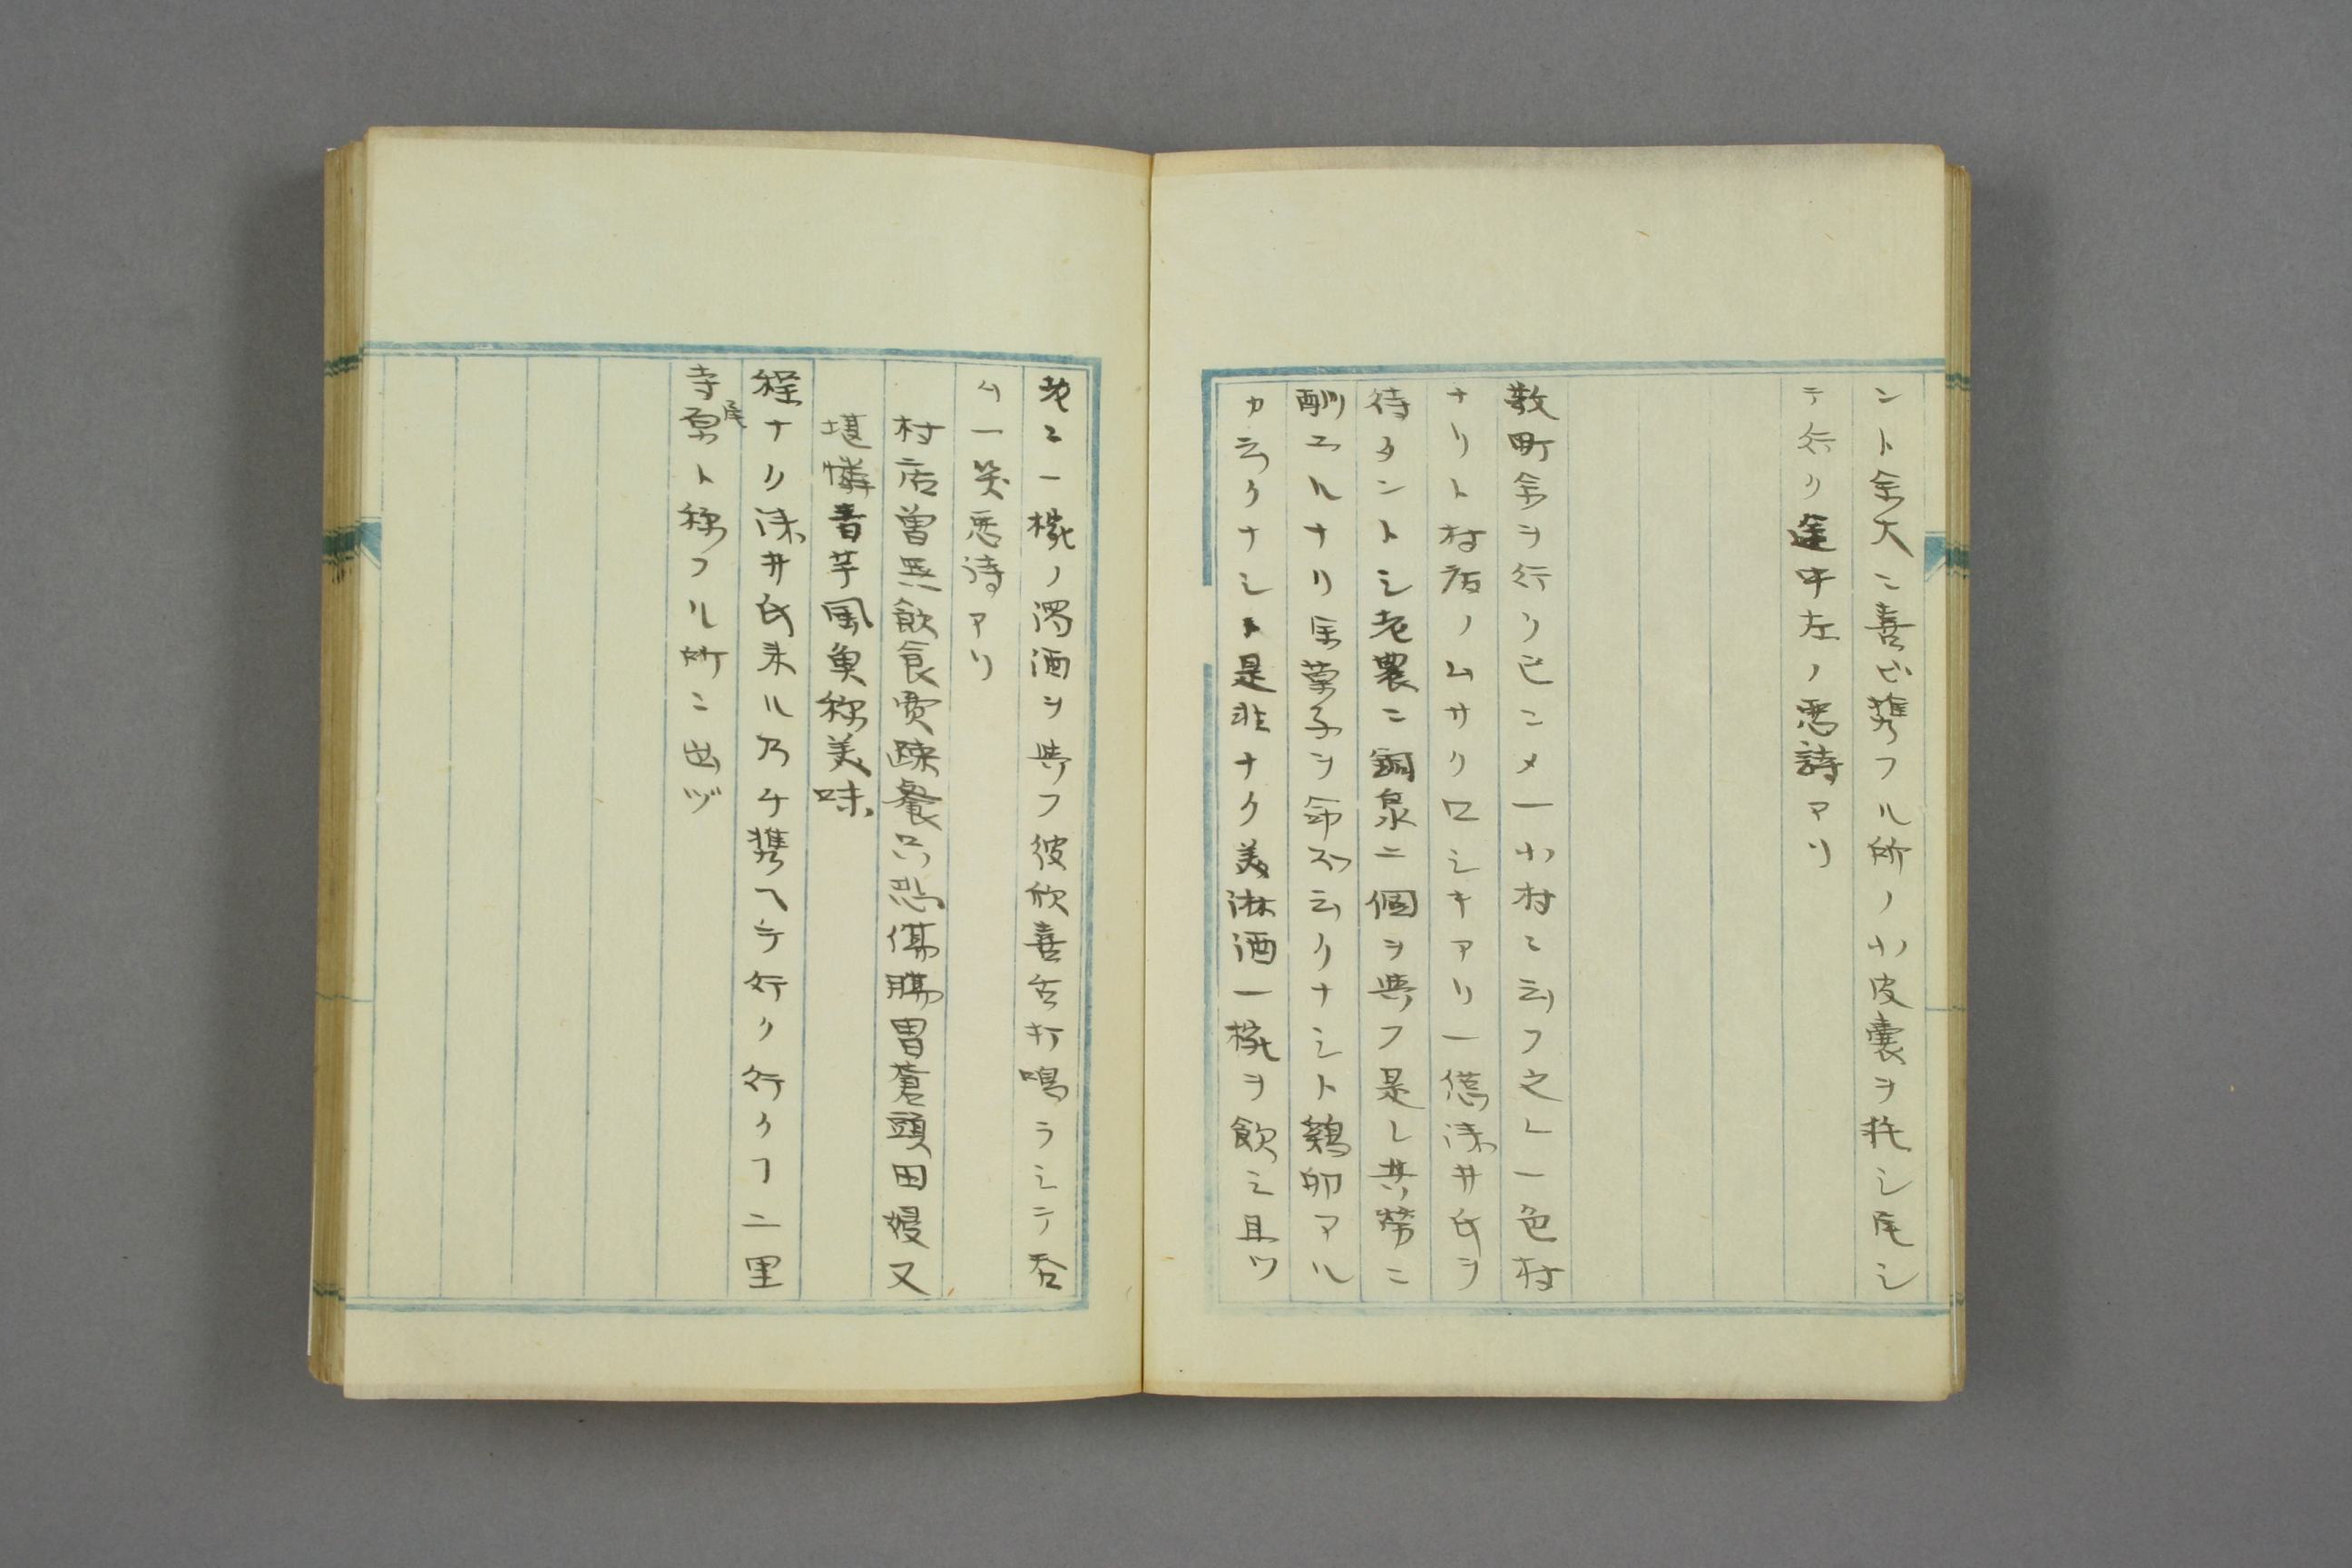 ント余大ニ喜ビ携フル所ノ小皮嚢ヲ托シ尾シ
テ行ク途中左ノ悪詩アリ
数町余ヲ行ク已ニメ一小村ニ云フ之レ一色村
ナリト村店ノムサクロシキアリ一憩浅井氏ヲ
待タントシ老農ニ銅泉二個ヲ與フ是レ其労ニ
酬ユルナリ余菓子ヲ命ズ云クナシト鶏卵アル
カ云クナシト是非ナク美淋酒一椀ヲ飲ミ且ツ
老ニ一椀ノ濁酒ヲ與フ彼欣喜舌打鳴ラシテ呑
ム一笑悪詩アリ
村店曽无飲食賣疎餐只恐傷腸胃蒼頭田嫚又
堪憐青芋風魚称美味
程ナク浅井氏来ル乃チ携ヘテ行ク行クヿ二里
寺尾ト称フル所ニ出ヅ